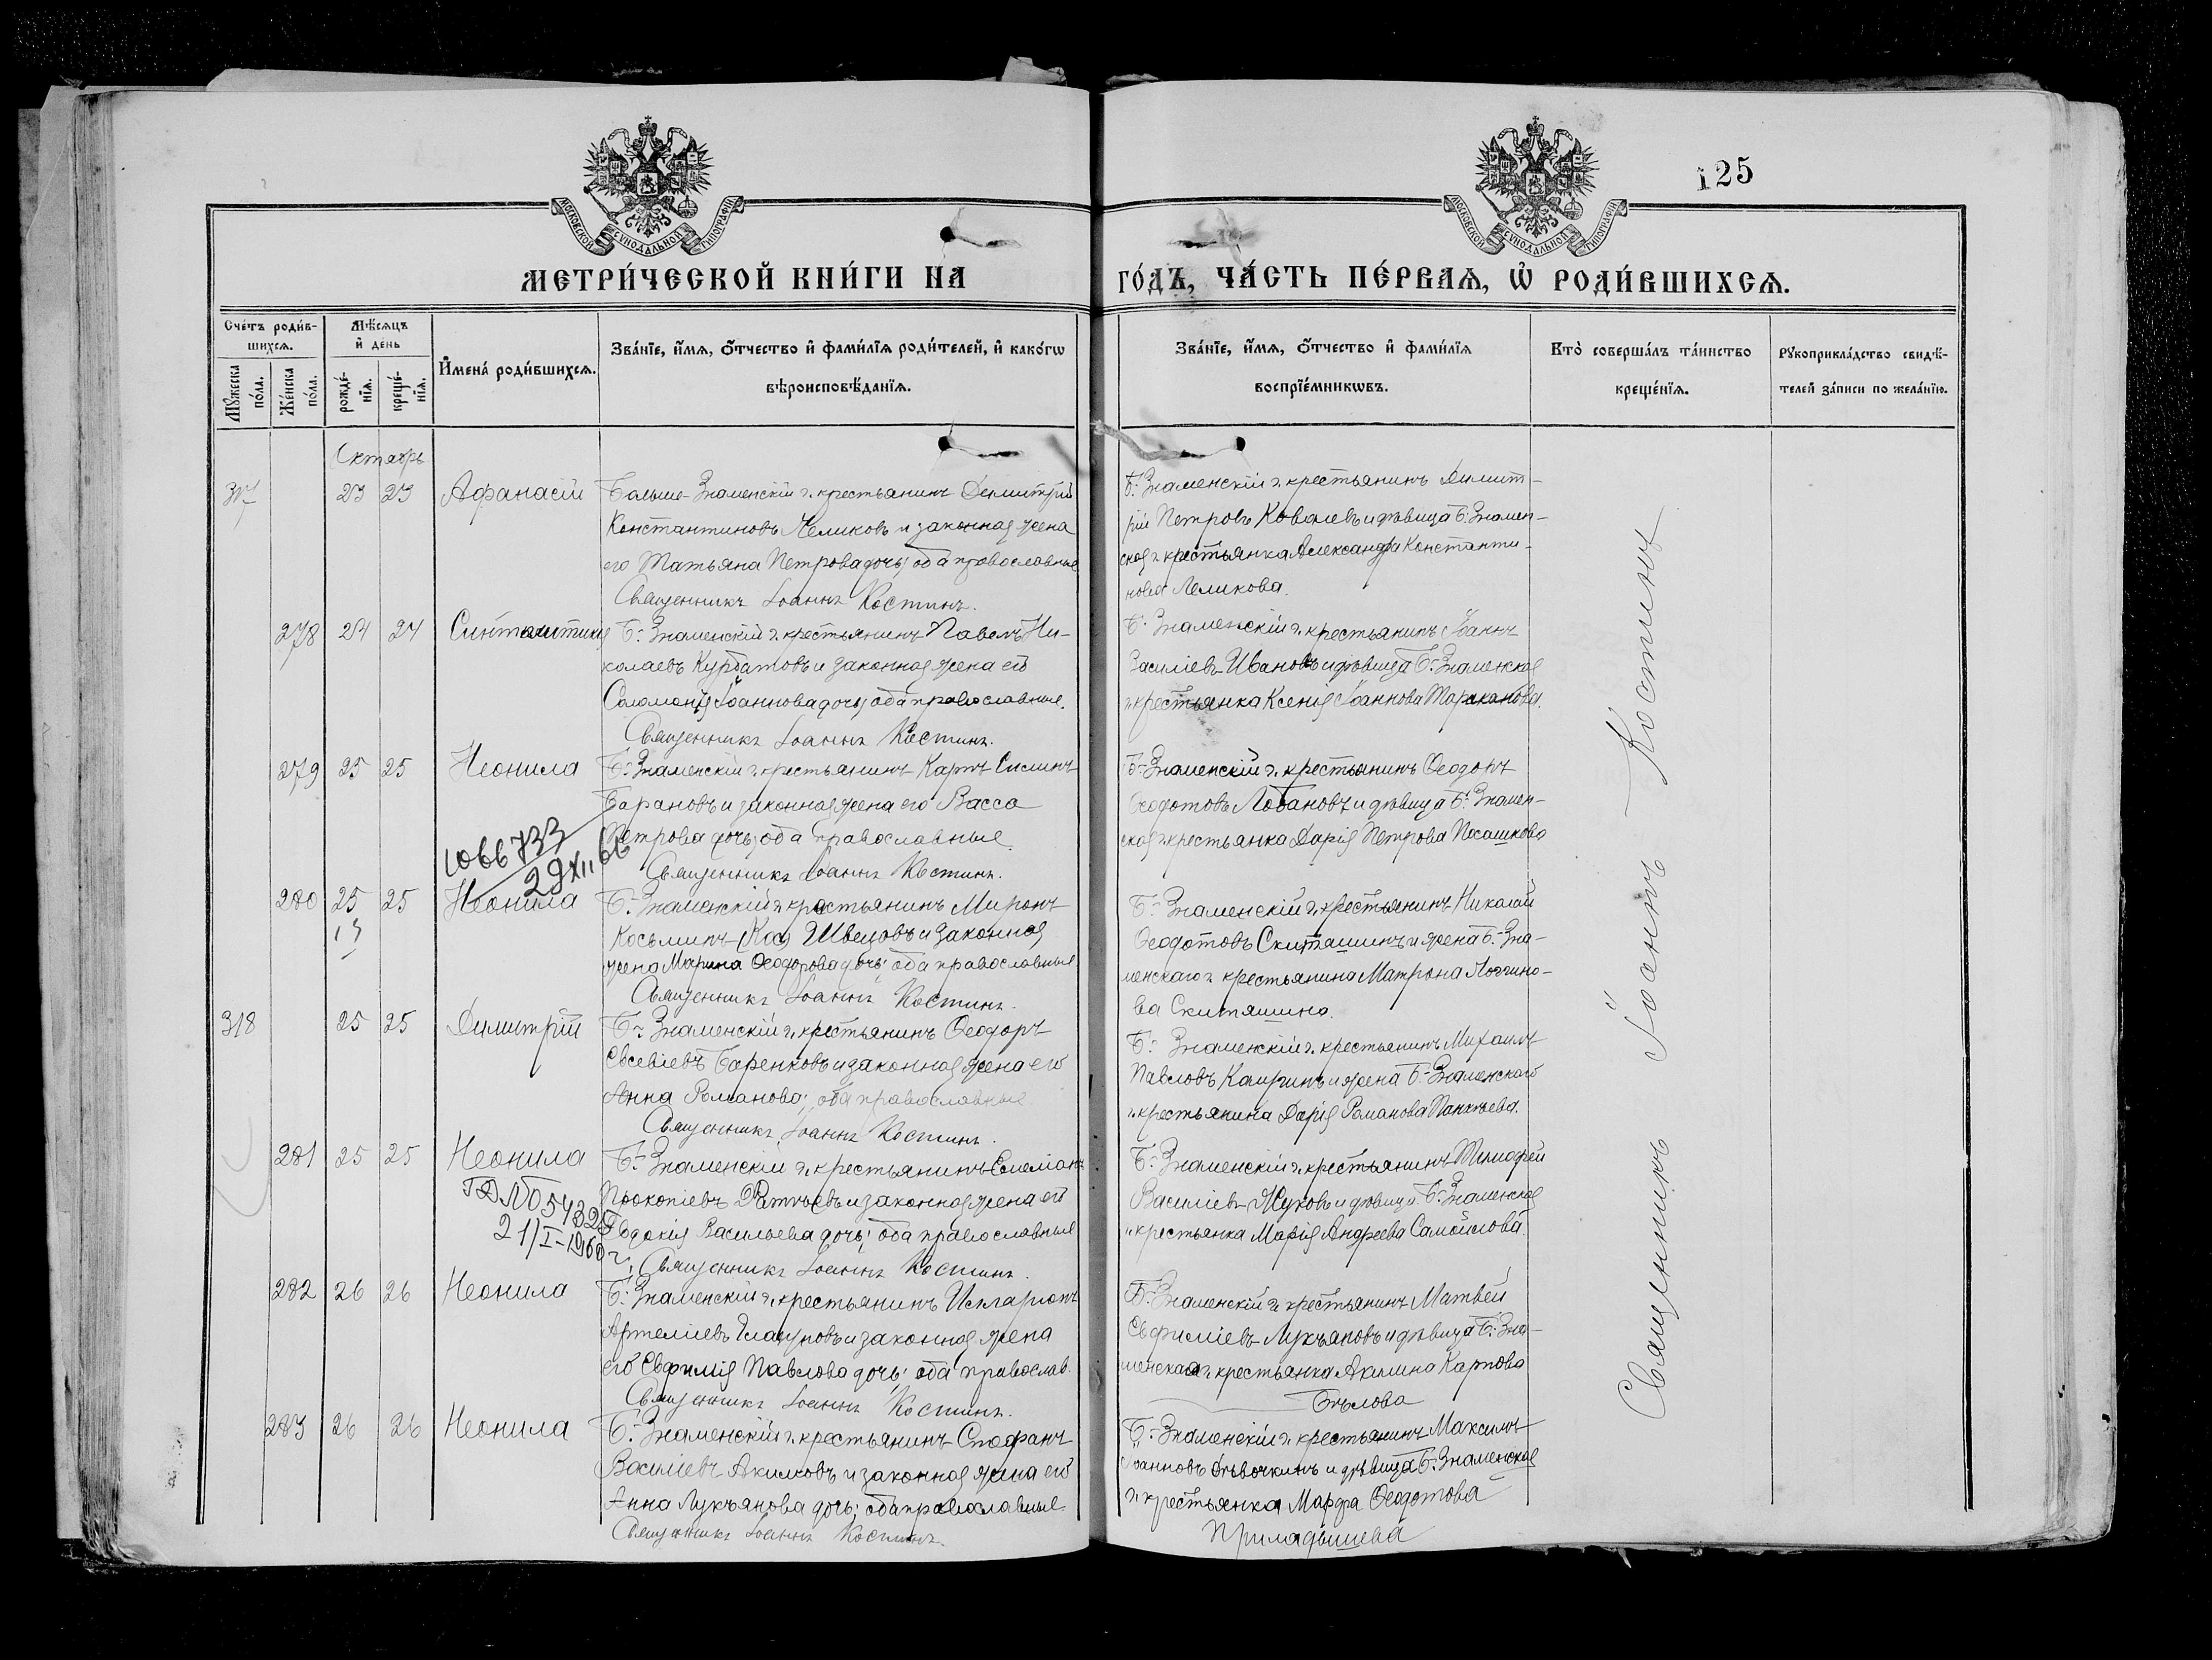 125
МОСКОВСКОЙ СѴНОДАЛЬНОЙ ТИПОГРАФІИ
МОСКОВСКОЙ СѴНОДАЛЬНОЙ ТИПОГРАФІИ
МЕТРИ́ЧЕСКОЙ КНИ́ГИ НА
ГО́ДЪ, ЧА́СТЬ ПЕ́РВАѦ, Ѡ҆ РОДИ́ВШИХСѦ.
Сче́тъ роди́в-
шихсѧ.
Мꙋжеска по́ла.
Же́нска по́ла.
Мѣ́сѧцъ
и҆ день
рожде́-
нїѧ.
креще́-
нїѧ.
И҆мена́ роди́вшихсѧ.
Зва́нїе, и҆́мѧ, ѻ҆́тчество и҆ фами́лїѧ роди́телей, и҆ како́гѡ
вѣроисповѣ́данїѧ.
Зва́нїе, и҆́мѧ, ѻ҆́тчество и҆ фами́лїѧ
воспрїе́мникѡвъ.
Кто̀ соверша́лъ та́инство
креще́нїѧ.
Рꙋкоприкла́дство свидѣ́-
телей за́писи по жела́нїю.
Октябрь
317 23 23 Афанасій
Больше-Знаменскій г. крестьянинъ Димитрій
Константиновъ Меликовъ и законная жена
его Татьяна Петрова дочь; оба православные
Священникъ Іоаннъ Костинъ.
Б.-Знаменскій г. крестьянинъ Димит-
рій Петровъ Ковалевъ и дѣвица Б.-Знамен-
ская г. крестьянка Александра Константи-
нова Меликова.
278 24 24 Синклитикія
Б.-Знаменскій г. крестьянинъ Павелъ Ни-
колаевъ Курбатовъ и законная жена его
Соломонія Іоаннова дочь; оба православные.
Священникъ Іоаннъ Костинъ.
Б.-Знаменскій г. крестьянинъ Іоаннъ
Василіевъ Ивановъ и дѣвица Б.-Знаменская
г. крестьянка Ксенія Іоаннова Тараканова.
279 25 25 Неонила
Б.-Знаменскій г. крестьянинъ Карпъ Силинъ
Барановъ и законная жена его Васса
Петрова дочь; оба православные.
Священникъ Іоаннъ Костинъ.
Б.-Знаменскій г. крестьянинъ Ѳеодоръ
Ѳеодотовъ Лобановъ и дѣвица Б.-Знамен-
ская г. крестьянка Дарія Петрова Посашкова
1066733
29 XII 66
280 25 25 Неонила
13
Б.-Знаменскій г. крестьянинъ Миронъ
Косьминъ (Кос) Швецовъ и законная
жена Марина Ѳеодорова дочь; оба православные
Священникъ Іоаннъ Костинъ.
Б.-Знаменскій г. крестьянинъ Николай
Ѳеодотовъ Скиташинъ и жена Б.-Зна-
менскаго г. крестьянина Матрона Логгино-
ва Скиташина.
318 25 25 Димитрій
Б.-Знаменскій г. крестьянинъ Ѳеодоръ
Евсевіевъ Баренковъ и законная жена его
Анна Романова; оба православные
Священникъ Іоаннъ Костинъ.
Б.- Знаменскій г. крестьянинъ Михаилъ
Павловъ и жена Б.-Знаменскаго
г. крестьянина Дарія Романова
281 25 25 Неонила
ГД № 054328
21/I-1960 г.
Б.-Знаменскій г. крестьянинъ Емеліанъ
Прокопіевъ и законная жена его
Евдокія Васильева дочь; оба православные
Священникъ Іоаннъ Костинъ.
Б.-Знаменскій г. крестьянинъ Тимофей
Василіевъ Жуковъ и дѣвица Б.-Знаменская
г. крестьянка Марія Андреева Самойлова.
282 26 26 Неонила
Б.-Знаменскій г. крестьянинъ Илларіонъ
Артеміевъ и законная жена
его Евфимія Павлова дочь; оба православ.
Священникъ Іоаннъ Костинъ.
Б.-Знаменскій г. крестьянинъ Матвей
Евфиміевъ Лукьяновъ и дѣвица Б.-Зна-
менская г. крестьянка Акилина Карпова
Бѣлова
283 26 26 Неонила
Б.-Знаменскій г. крестьянинъ Стефанъ
Василіевъ Акимовъ и законная жена его
Анна Лукьянова дочь; оба православные
Священникъ Іоаннъ Костинъ.
Б.-Знаменскій г. крестьянинъ Максимъ
Іоанновъ Дѣвочкинъ и дѣвица Б.-Знаменская
г. крестьянка Марфа Ѳеодотова
Приладышева
Священникъ Іоаннъ Костинъ